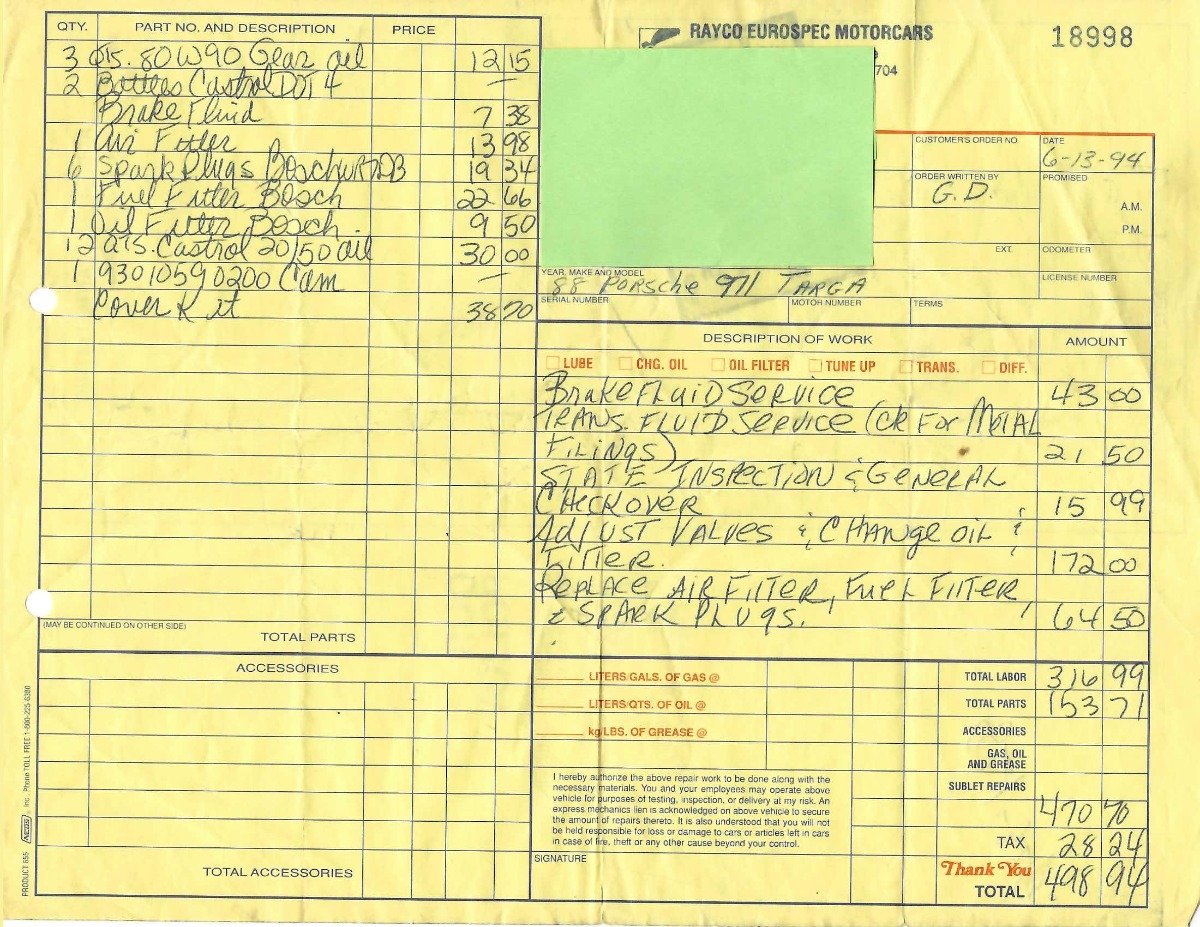 RAYCO EUROSPEC MOTORCARS
18998
704
QTY. PART NO. AND DESCRIPTION PRICE
3 QTS. 80W90 Gear oil 12 15
2 Bottles Castrol DOT 4 —
Brake Fluid 7 38
1 Air Filter 13 98
6 Spark Plugs Bosch 19 34
1 Fuel Filter Bosch 22 66
1 Oil Filter Bosch. 9 50
12 QTS. Castrol 20/50 oil 30 00
1 93010590200 Cam —
Cover Kit 38 70
(MAY BE CONTINUED ON OTHER SIDE)
TOTAL PARTS
ACCESSORIES
TOTAL ACCESSORIES
PRODUCT 655 NEBS Inc. Phone TOLL FREE 1-800-225-6380
CUSTOMER'S ORDER NO. DATE
6-13-94
ORDER WRITTEN BY PROMISED
G.D.
A.M.
P.M.
EXT. ODOMETER
YEAR, MAKE AND MODEL LICENSE NUMBER
88 Porsche 911 TARGA
SERIAL NUMBER MOTOR NUMBER TERMS
DESCRIPTION OF WORK AMOUNT
LUBE CHG. OIL OIL FILTER TUNE UP TRANS. DIFF.
Brake FLuiD Service 43 00
TRANS. FLUID Service (CK For METAL
FiLiNgS) 21 50
STATE INSPECTION & GeNeRAL
CHeckover 15 99
AdjUST VALVES & CHANge oiL &
FiLTeR. 172 00
RePLACE AiR FiLTER, FueL FiLTER,
& SPARK PLUgS. 64 50
LITERS/GALS. OF GAS @ TOTAL LABOR 316 99
LITERS/QTS. OF OIL @ TOTAL PARTS 153 71
kg/LBS. OF GREASE @ ACCESSORIES
GAS, OIL
AND GREASE
SUBLET REPAIRS
470 70
I hereby authorize the above repair work to be done along with the
necessary materials. You and your employees may operate above
vehicle for purposes of testing, inspection, or delivery at my risk. An
express mechanics lien is acknowledged on above vehicle to secure
the amount of repairs thereto. It is also understood that you will not
be held responsible for loss or damage to cars or articles left in cars
in case of fire, theft or any other cause beyond your control.
TAX 28 24
SIGNATURE
Thank You
TOTAL 498 94